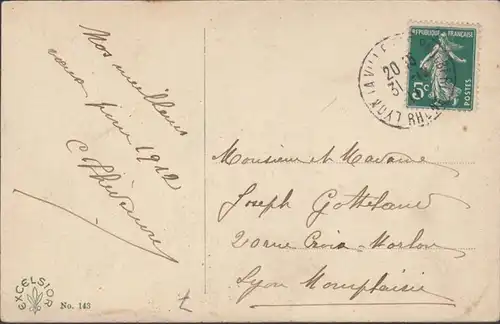 Nos meilleurs
vœux pour 1912
EXCELSIOR
No. 143
LYON LA VILLE RHONE
20
31
REPUBLIQUE FRANÇAISE
5c
POSTES
Monsieur et Madame
Joseph Gotteland
20 rue Croix-Morlon
Lyon Montplaisir